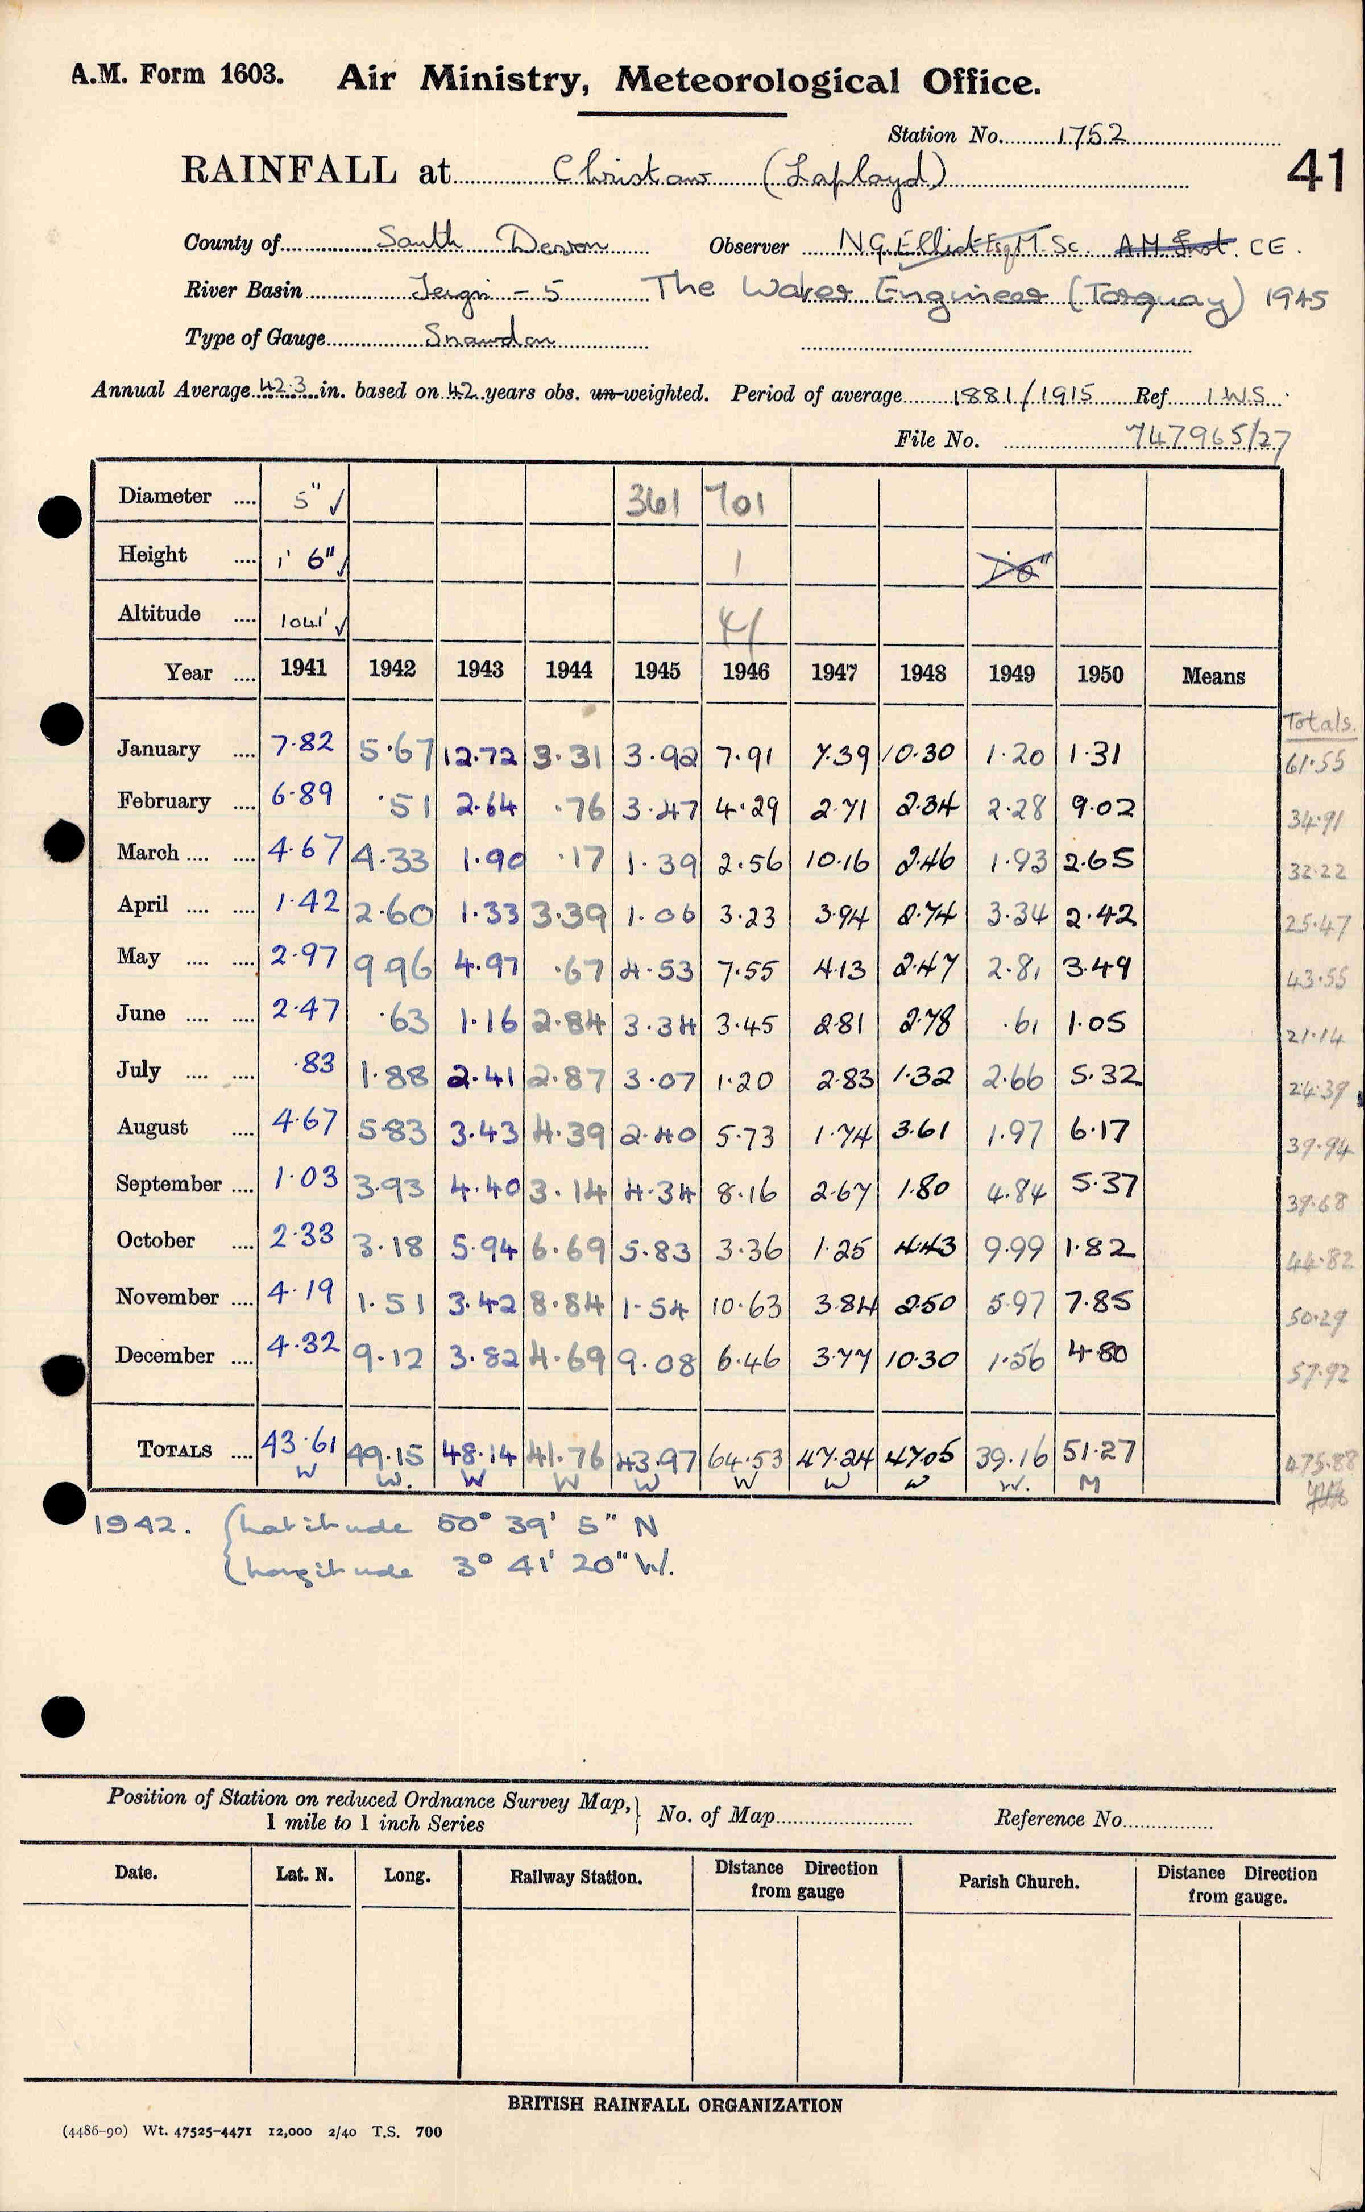 A.M. Form 1603. Air Ministry, Meteorological Office.
Station No. 1752
41
RAINFALL at Christow (Laployd)
County of South Devon Observer N.G. Elliot Esq M.Sc. A.M. Inst. C.E.
River Basin Teign - 5 The Water Engineer (Torquay) 1945
Type of Gauge Snowdon
Annual Average 42.3 in. based on 42 years obs. un-weighted. Period of average 1881/1915 Ref I.W.S.
File No. 747965/27
Diameter .... 5" ✓ 361 701
Height .... 1' 6" ✓ 1 1'0"
Altitude .... 1041' ✓ 41
Year .... 1941 1942 1943 1944 1945 1946 1947 1948 1949 1950 Means
Totals.
January .... 7.82 5.67 12.72 3.31 3.92 7.91 7.39 10.30 1.20 1.31 61.55
February .... 6.89 .51 2.64 .76 3.47 4.29 2.71 2.34 2.28 9.02 34.91
March .... .... 4.67 4.33 1.90 .17 1.39 2.56 10.16 2.46 1.93 2.65 32.22
April .... .... 1.42 2.60 1.33 3.39 1.06 3.23 3.94 2.74 3.34 2.42 25.47
May .... .... 2.97 9.96 4.97 .67 4.53 7.55 4.13 2.47 2.81 3.49 43.55
June .... .... 2.47 .63 1.16 2.84 3.34 3.45 2.81 2.78 .61 1.05 21.14
July .... .... .83 1.88 2.41 2.87 3.07 1.20 2.83 1.32 2.66 5.32 24.39
August .... 4.67 5.83 3.43 4.39 2.40 5.73 1.74 3.61 1.97 6.17 39.94
September .... 1.03 3.93 4.40 3.14 4.34 8.16 2.67 1.80 4.84 5.37 39.68
October .... 2.33 3.18 5.94 6.69 5.83 3.36 1.25 4.43 9.99 1.82 44.82
November .... 4.19 1.51 3.42 8.84 1.54 10.63 3.84 2.50 5.97 7.85 50.29
December .... 4.32 9.12 3.82 4.69 9.08 6.46 3.77 10.30 1.56 4.80 57.92
TOTALS .... 43.61 49.15 48.14 41.76 43.97 64.53 47.24 47.05 39.16 51.27 475.88
W W. W W W W W W W. M
1942. { Latitude 50° 39' 5" N
{ Longitude 3° 41' 20" W.
Position of Station on reduced Ordnance Survey Map, } No. of Map Reference No.
1 mile to 1 inch Series
Date. Lat. N. Long. Railway Station. Distance Direction from gauge Parish Church. Distance Direction from gauge.
BRITISH RAINFALL ORGANIZATION
(4486-90) Wt. 47525-4471 12,000 2/40 T.S. 700